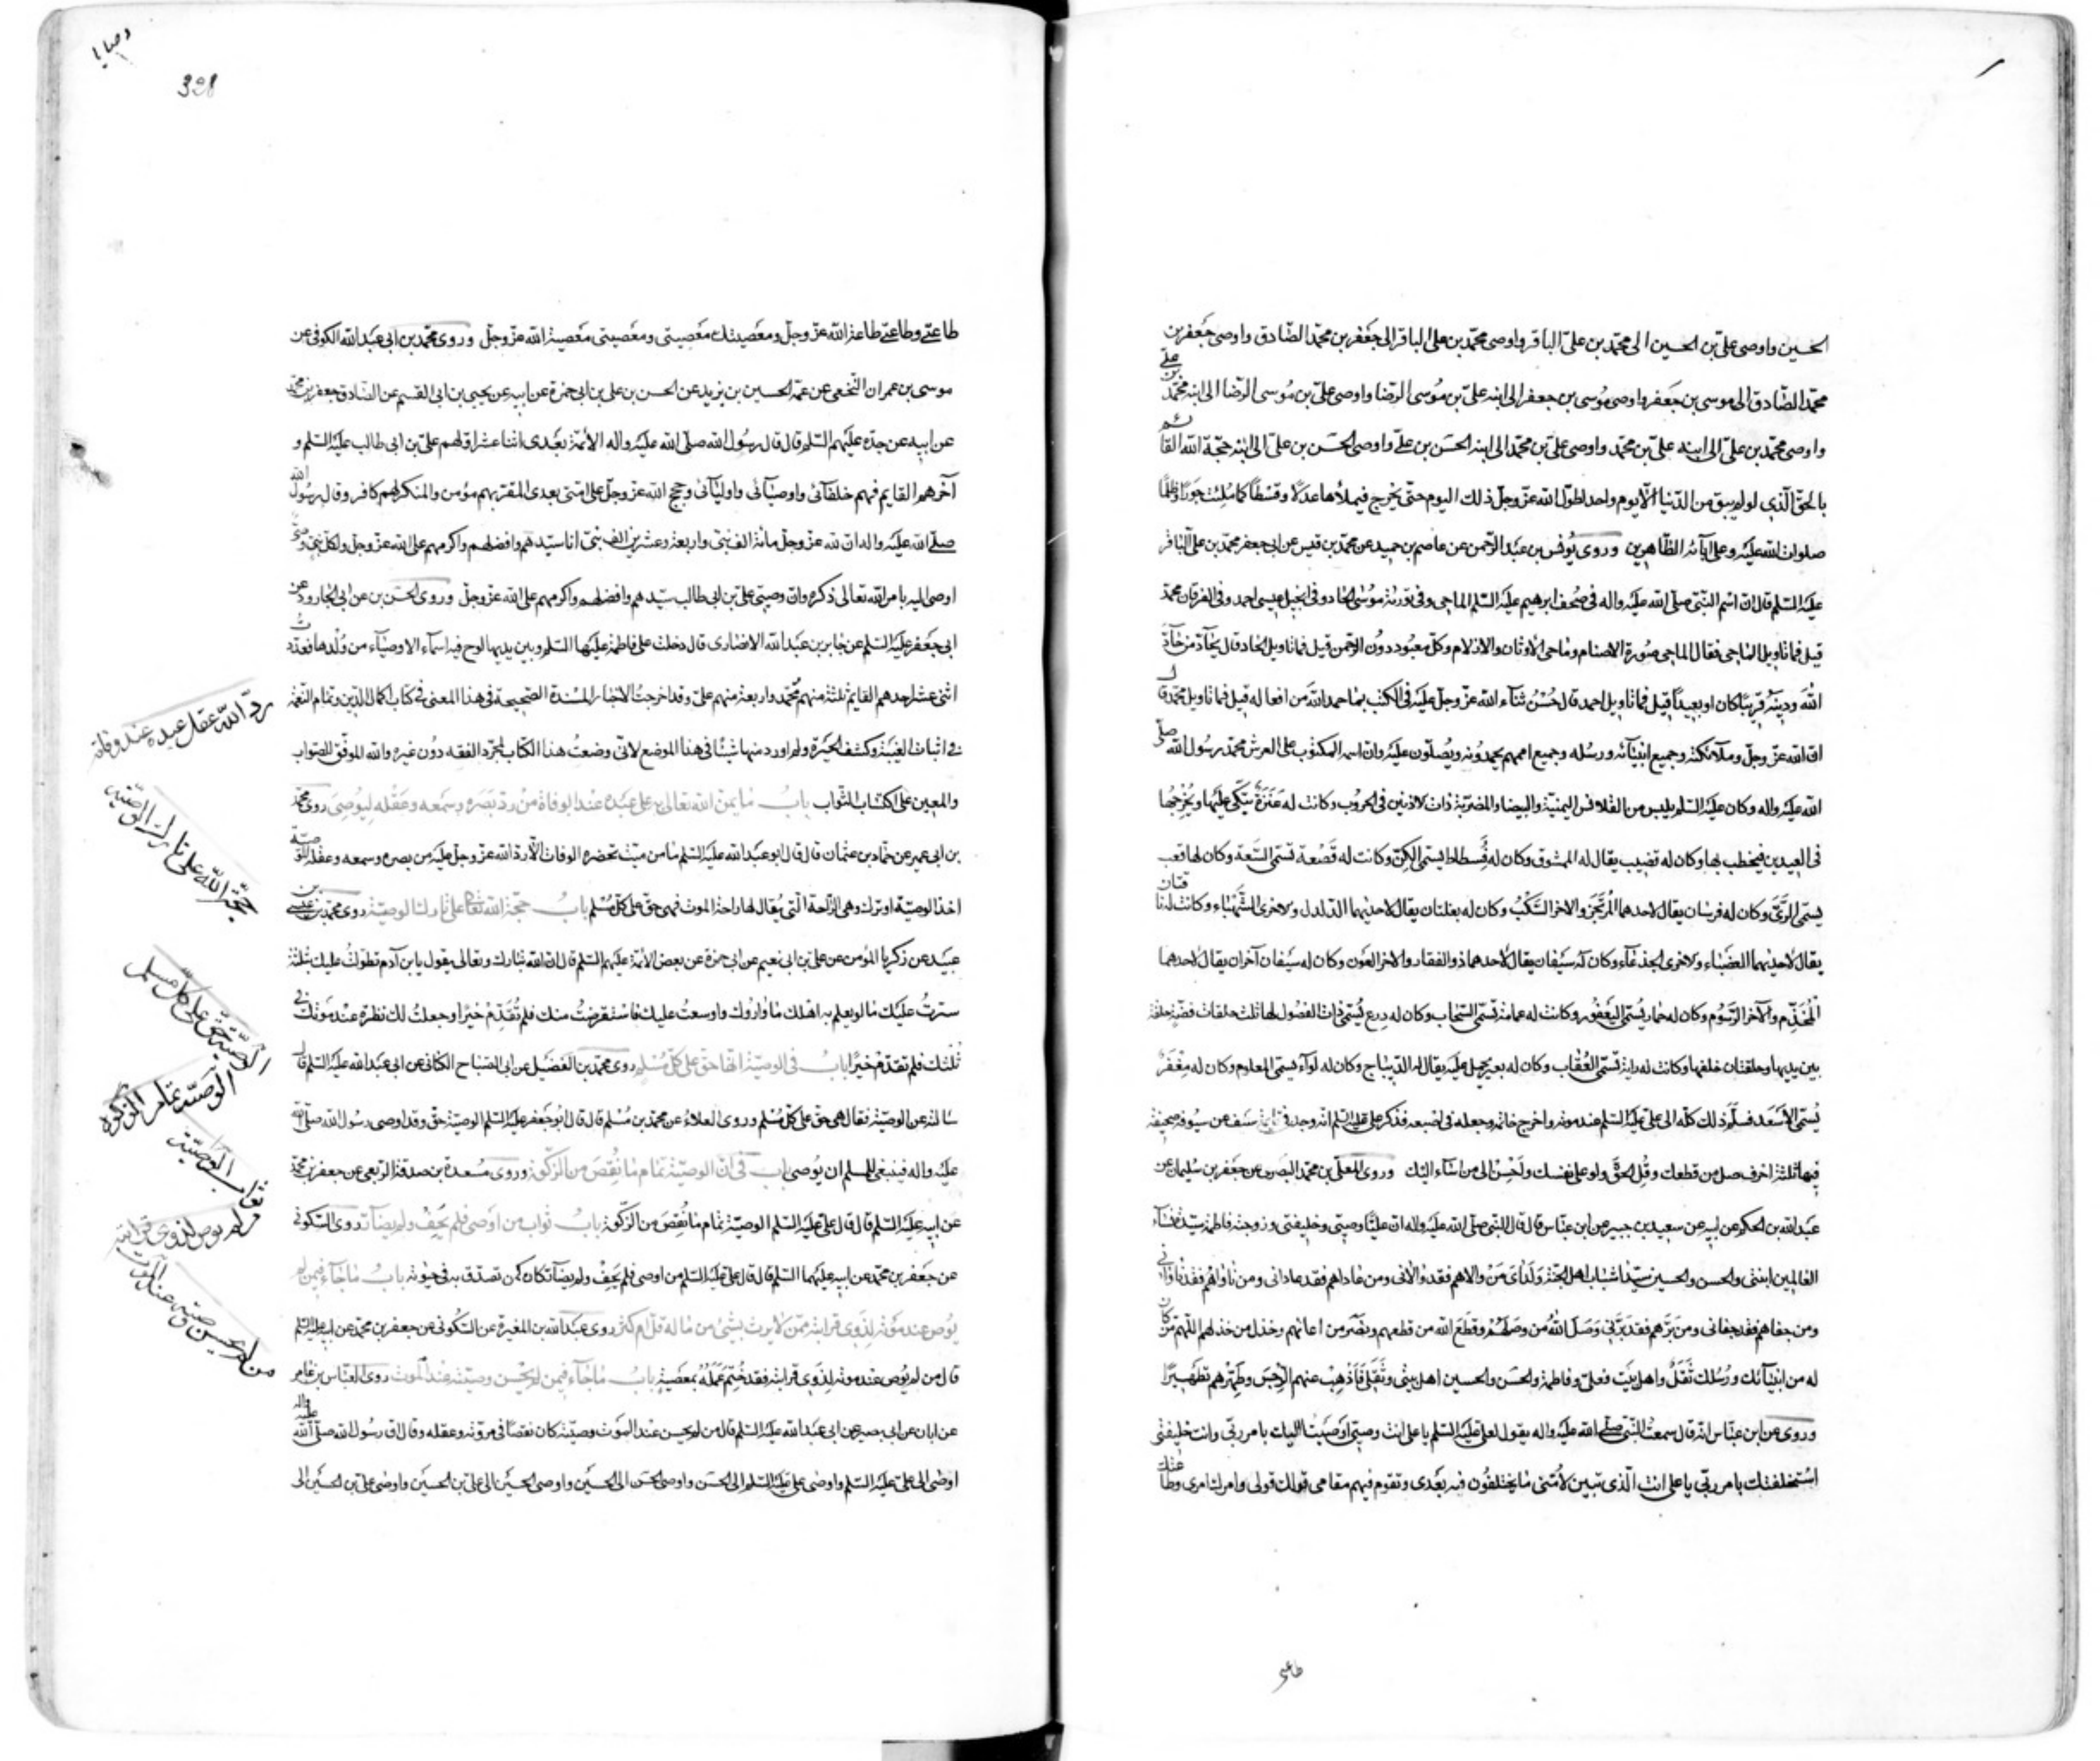 الحسين واوصى علىّ بن الحسين الى محمّد بن علىّ الباقر واوصى محمّد بن على الباقر الى جعفر بن محمّد الصّادق واوصى جعفر بن
محمّد الصّادق الى موسى بن جعفر واوصى موسى بن جعفر الى ابنه علىّ بن موسى الرّضا واوصى علىّ بن موسى الرّضا الى ابنه محمّد بن على
واوصى محمّد بن علىّ الى ابنه علىّ بن محمّد واوصى علىّ بن محمّد الى ابنه الحسن بن على واوصى الحسن بن علىّ الى ابنه حجّة الله القائم
بالحقّ الّذى لو لم يبق من الدّنيا الّا يوم واحد لطوّل الله عزّ وجلّ ذلك اليوم حتّى يخرج فيملأها عدلا وقسطا كما ملئت جورا وظلما
صلوات الله عليه وعلى آبائه الطّاهرين وروى يونس بن عبد الرّحمن عن عاصم بن حميد عن محمّد بن قيس عن ابى جعفر محمّد بن على الباقر
عليه السّلم قال انّ اسم النّبىّ صلّى الله عليه واله فى صحف ابرهيم عليه السّلم الماحى وفى تورية موسى الحاد وفى انجيل عيسى احمد وفى الفرقان محمّد
قيل فما تاويل الماحى فقال الماحى صورة الاصنام وماحى الاوثان والازلام وكلّ معبود دون الرّحمن قيل فما تاويل الحاد قال يحادّ من حادّ
الله ودينه قريبا كان او بعيدا قيل فما تاويل احمد قال حسن ثناء الله عزّ وجلّ عليه فى الكتب بما حمد الله من افعاله قيل فما تاويل محمّد قال
انّ الله عزّ وجلّ وملائكته وجميع انبيائه ورسله وجميع اممهم يحمدونه ويصلّون عليه وانّ اسمه المكتوب على العرش محمّد رسول الله صلّى
الله عليه واله وكان عليه السّلم يلبس من القلانس اليمنيّة والبيضاء والمضربّة ذات الاذنين فى الحروب وكانت له عنزة يتّكى عليها ويخرجها
فى العيدين فيخطب بها وكان له قضيب يقال له الممشوق وكان له فسطاط يسمّى الكنّ وكانت له قصعة تسمّى السّعة وكان له قعب
يسمّى الرّىّ وكان له فرسان يقال لاحدهما المرتجز والاخر السّكب وكان له بغلتان يقال لاحديهما الدّلدل ولاخرى الشّهباء وكانت له ناقتان
يقال لاحديهما العضباء ولاخرى الجذعاء وكان له سيفان يقال لاحدهما ذو الفقار والاخر العون وكان له سيفان آخران يقال لاحدهما
المخذّم والآخر الرّسوم وكان له حمار يسمّى اليعفور وكانت له عمامة تسمّى السّحاب وكان له درع تسمّى ذات الفضول لها ثلث حلقات فضّة حلقة
بين يديها وحلقتان خلفها وكانت له راية تسمّى العقاب وكان له بعير يحمل عليه يقال له الدّيباج وكان له لواء يسمّى المعلوم وكان له مغفر
يسمّى الاسعد فسلّم ذلك كلّه الى علىّ عليه السّلم عند موته واخرج خاتمه وجعله فى اصبعه فذكر على عليه السّلم انّه وجد فى قائمة سيف من سيوفه صحيفة
فيها ثلثة احرف صل من قطعك وقل الحقّ ولو على نفسك واحسن الى من اساء اليك وروى المعلّى بن محمّد البصرى عن جعفر بن سليمان عن
عبد الله بن الحكم عن ابيه عن سعيد بن جبير عن ابن عبّاس قال قال النّبى صلّى الله عليه واله انّ عليّا وصيّى وخليفتى وزوجته فاطمة سيّدة نساء
العالمين ابنتى والحسن والحسين سيّدا شباب اهل الجنّة ولداى من والاهم فقد والانى ومن عاداهم فقد عادانى ومن ناواهم فقد ناوانى
ومن جفاهم فقد جفانى ومن برّهم فقد برّنى وصل الله من وصلهم وقطع الله من قطعهم ونصر من اعانهم وخذل من خذلهم اللّهم من كان
له من انبيائك ورسلك ثقل واهل بيت فعلىّ وفاطمة والحسن والحسين اهل بيتى وثقلى فاذهب عنهم الرّجس وطهّرهم تطهيرا
وروى عن ابن عبّاس انّه قال سمعت النّبى صلّى الله عليه واله يقول لعلى عليه السّلم يا على انت وصيّى اوصيت اليك بامر ربّى وانت خليفتى
استخلفتك بامر ربّى يا على انت الّذى تبيّن لامّتى ما يختلفون فيه بعدى وتقوم فيهم مقامى قولك قولى وامرك امرى وطاعتك
طاعتى
وصايا
328
طاعتى وطاعتى طاعة الله عزّ وجلّ ومعصيتك معصيتى ومعصيتى معصية الله عزّ وجلّ وروى محمّد بن ابى عبد الله الكوفى عن
موسى بن عمران النّخعى عن عمّه الحسين بن يزيد عن الحسن بن على بن ابى حمزة عن ابيه عن يحيى بن ابى القسم عن الصّادق جعفر بن محمّد
عن ابيه عن جدّه عليهم السّلم قال قال رسول الله صلّى الله عليه واله الائمّة بعدى اثنا عشر اوّلهم علىّ بن ابى طالب عليه السّلم و
آخرهم القايم فهم خلفائى واوصيائى واوليائى وحجج الله عزّ وجلّ على امّتى بعدى المقرّ بهم مؤمن والمنكر لهم كافر وقال رسول الله
صلّى الله عليه واله انّ لله عزّ وجلّ مائة الف نبىّ واربعة وعشرين الف نبىّ انا سيّدهم وافضلهم واكرمهم على الله عزّ وجلّ ولكلّ نبىّ وصىّ
اوصى اليه بامر الله تعالى ذكره وانّ وصيّى علىّ بن ابى طالب سيّدهم وافضلهم واكرمهم على الله عزّ وجلّ وروى الحسن بن عن ابى الجارود عن
ابى جعفر عليه السّلم عن جابر بن عبد الله الانصارى قال دخلت على فاطمة عليها السّلم وبين يديها لوح فيه اسماء الاوصياء من ولدها فعددت
اثنى عشر احدهم القايم ثلثة منهم محمّد واربعة منهم علىّ وقد اخرجت الاخبار المسندة الصّحيحة فى هذا المعنى فى كتاب اكمال الدّين وتمام النّعمة
فى اثبات الغيبة وكشف الحيرة ولم اورد منها شيئا فى هذا الموضع لانّى وضعت هذا الكتاب لمجرّد الفقه دون غيره والله الموفّق للصّواب
والمعين على اكتساب الثّواب باب ما يمنّ الله تعالى به على عبده عند الوفاة من ردّ بصره وسمعه وعقله ليوصى روى محمّد
بن ابى عمير عن حمّاد بن عثمان قال قال ابو عبد الله عليه السّلم ما من ميّت تحضره الوفات الّا ردّ الله عزّ وجلّ عليه من بصره وسمعه وعقله للوصيّة
اخذ الوصيّة او ترك وهى الرّاحة الّتى يقال لها راحة الموت فهى حقّ على كلّ مسلم باب حجّة الله تعالى على تارك الوصيّة روى محمّد بن عيسى بن
عبيد عن زكريا المؤمن عن على بن ابى نعيم عن ابى حمزة عن بعض الائمّة عليهم السّلم قال انّ الله تبارك وتعالى يقول يا بن آدم تطوّلت عليك بثلثة
سترت عليك ما لو يعلم به اهلك ما واروك واوسعت عليك فاستقرضت منك فلم تقدّم خيرا وجعلت لك نظرة عند موتك فى
ثلثك فلم تقدّم خيرا باب فى الوصيّة انّها حقّ على كلّ مسلم روى محمّد بن الفضيل عن ابى الصّباح الكنانى عن ابى عبد الله عليه السّلم قال
سالته عن الوصيّة فقال هى حقّ على كلّ مسلم وروى العلاء عن محمّد بن مسلم قال قال ابو جعفر عليه السّلم الوصيّة حقّ وقد اوصى رسول الله صلّى الله
عليه واله فينبغى للمسلم ان يوصى باب فى انّ الوصيّة تمام ما نقص من الزّكوة وروى مسعدة بن صدقة الرّبعى عن جعفر بن محمّد
عن ابيه عليه السّلم قال قال علىّ عليه السّلم الوصيّة تمام ما نقص من الزّكوة باب ثواب من اوصى فلم يحف ولم يضارّ روى السّكونى
عن جعفر بن محمّد عن ابيه عليهما السّلم قال قال على عليه السّلم من اوصى فلم يحف ولم يضارّ كان كمن تصدّق به فى حيوته باب ما جاء فيمن لم
يوص عند موته لذوى قرابته ممّن لا يرث بشىء من ماله قلّ ام كثر روى عبد الله بن المغيرة عن السّكونى عن جعفر بن محمّد عن ابيه عليه السّلم
قال من لم يوص عند موته لذوى قرابته فقد ختم عمله بمعصية باب ما جاء فيمن لم يحسن وصيّته عند الموت روى العبّاس بن عامر
عن ابان عن ابى بصير عن ابى عبد الله عليه السّلم قال من لم يحسن عند الموت وصيّته كان نقصا فى مروّته وعقله وقال انّ رسول الله صلّى الله عليه واله
اوصى الى علىّ عليه السّلم واوصى على عليه السّلم الى الحسن واوصى الحسن الى الحسين واوصى الحسين الى علىّ بن الحسين واوصى على بن الحسين الى
ردّ الله عقل عبده عند وفاة
حجّة الله على تارك الوصيّة
الوصيّة حقّ على كلّ مسلم
الوصيّة تمام الزكوة
ثواب الوصيّة
من لم يوص لذوى قرابته
من لم يحسن وصيته عند الموت